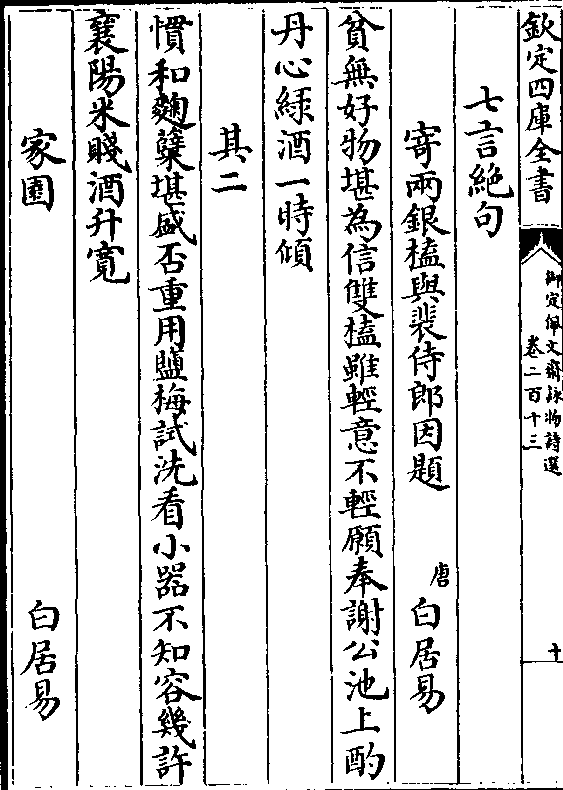 欽定四庫全書
御定佩文齋詠物詩選
卷二百十三
十
七言絶句
寄兩銀榼與裴侍郎因題　唐　白居易
貧無好物堪為信雙榼雖輕意不輕願奉謝公池上酌
丹心緑酒一時傾
其二
慣和麴糵堪盛否重用鹽梅試洗看小器不知容幾許
襄陽米賤酒升寛
家園　白居易